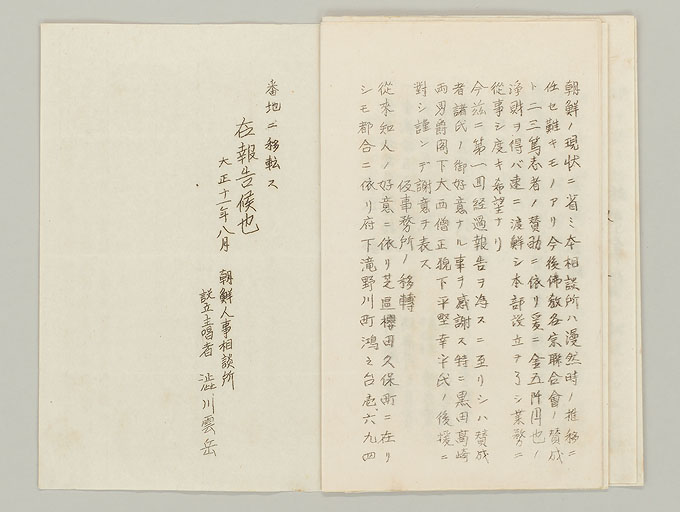 朝鮮ノ現状ニ省ミ本相談所ハ漫然時ノ推移ニ
任セ難キモノアリ今後佛教各宗聯合會ノ賛成
ト二三篤志者ノ賛助ニ依リ爰ニ金五阡円也ノ
浄財ヲ得バ速ニ渡鮮シ本部設立ヲ了シ業務ニ
從事シ度キ希望ナリ
今茲ニ第一回経過報告ヲ為スニ至リシハ賛成
者諸氏ノ御好意ナル事ヲ感謝ス特ニ黒田高崎
両男爵閣下大西僧正猊下平野幸宇氏ノ後援ニ
對シ謹ンデ謝意ヲ表ス
仮事務所ノ移轉
從来知人ノ好意ニ依リ芝區櫻田久保町ニ在リ
シモ都合ニ依リ府下滝野川町鴻之台壱六九四
番地ニ移転ス
右報告候也
大正十一年八月
朝鮮人事相談所
設立主唱者 澁川雲岳